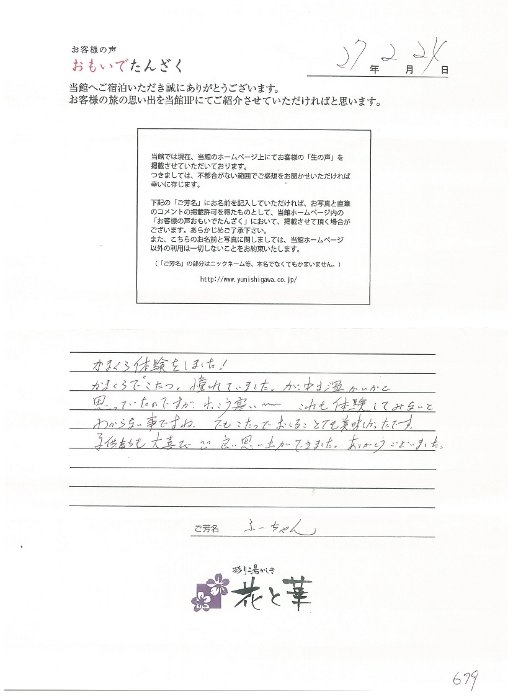 お客様の声
おもいでたんざく
27年2月24日
当館へご宿泊いただき誠にありがとうございます。
お客様の旅の思い出を当館HPにてご紹介させていただければと思います。
当館では現在、当館のホームページ上にてお客様の「生の声」を
掲載させていただいております。
つきましては、不都合がない範囲でご感想をお聞かせいただければ
幸いに存じます。
下記の「ご芳名」にお名前を記入していただければ、お写真と直筆
のコメントの掲載許可を得たものとして、当館ホームページ内の
「お客様の声おもいでたんざく」において、掲載させて頂く場合が
ございます。あらかじめご了承下さい。
また、こちらのお名前と写真に関しましては、当館ホームページ
以外の利用は一切しないことをお約束いたします。
(「ご芳名」の部分はニックネーム等、本名でなくてもかまいません。)
http://www.yunishigawa.co.jp/
かまくら体験をしました!
かまくらでこたつ。憧れていました。かまくら中は温かいかと
思っていたのですが、けっこう寒い〜 これも体験してみないと
わからない事ですね。でもこたつでおしることても美味しかったです。
子供たちも大喜び 良い思い出ができました。ありがとうございました。
ご芳名 ふーちゃん
彩り湯かしき
花と華
679